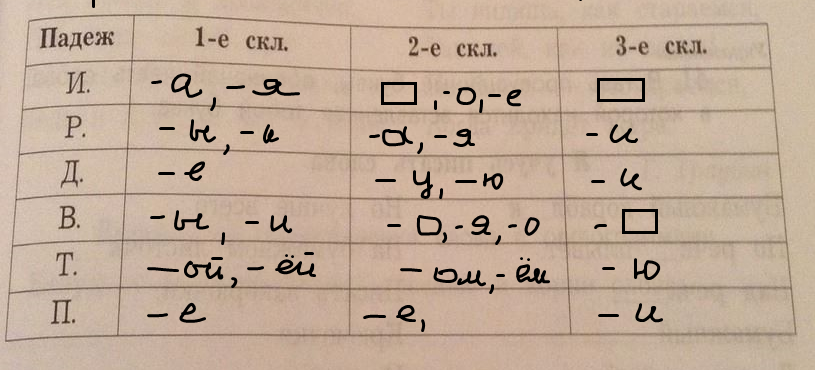 Падеж 1-е скл. 2-е скл. 3-е скл.
И. -а, -я □, -о, -е □
Р. -ы, -и -а, -я -и
Д. -е -у, -ю -и
В. -ы, -и -о, -я, -о -□
Т. -ой, -ёй -ом, -ём -ю
П. -е -е, -и